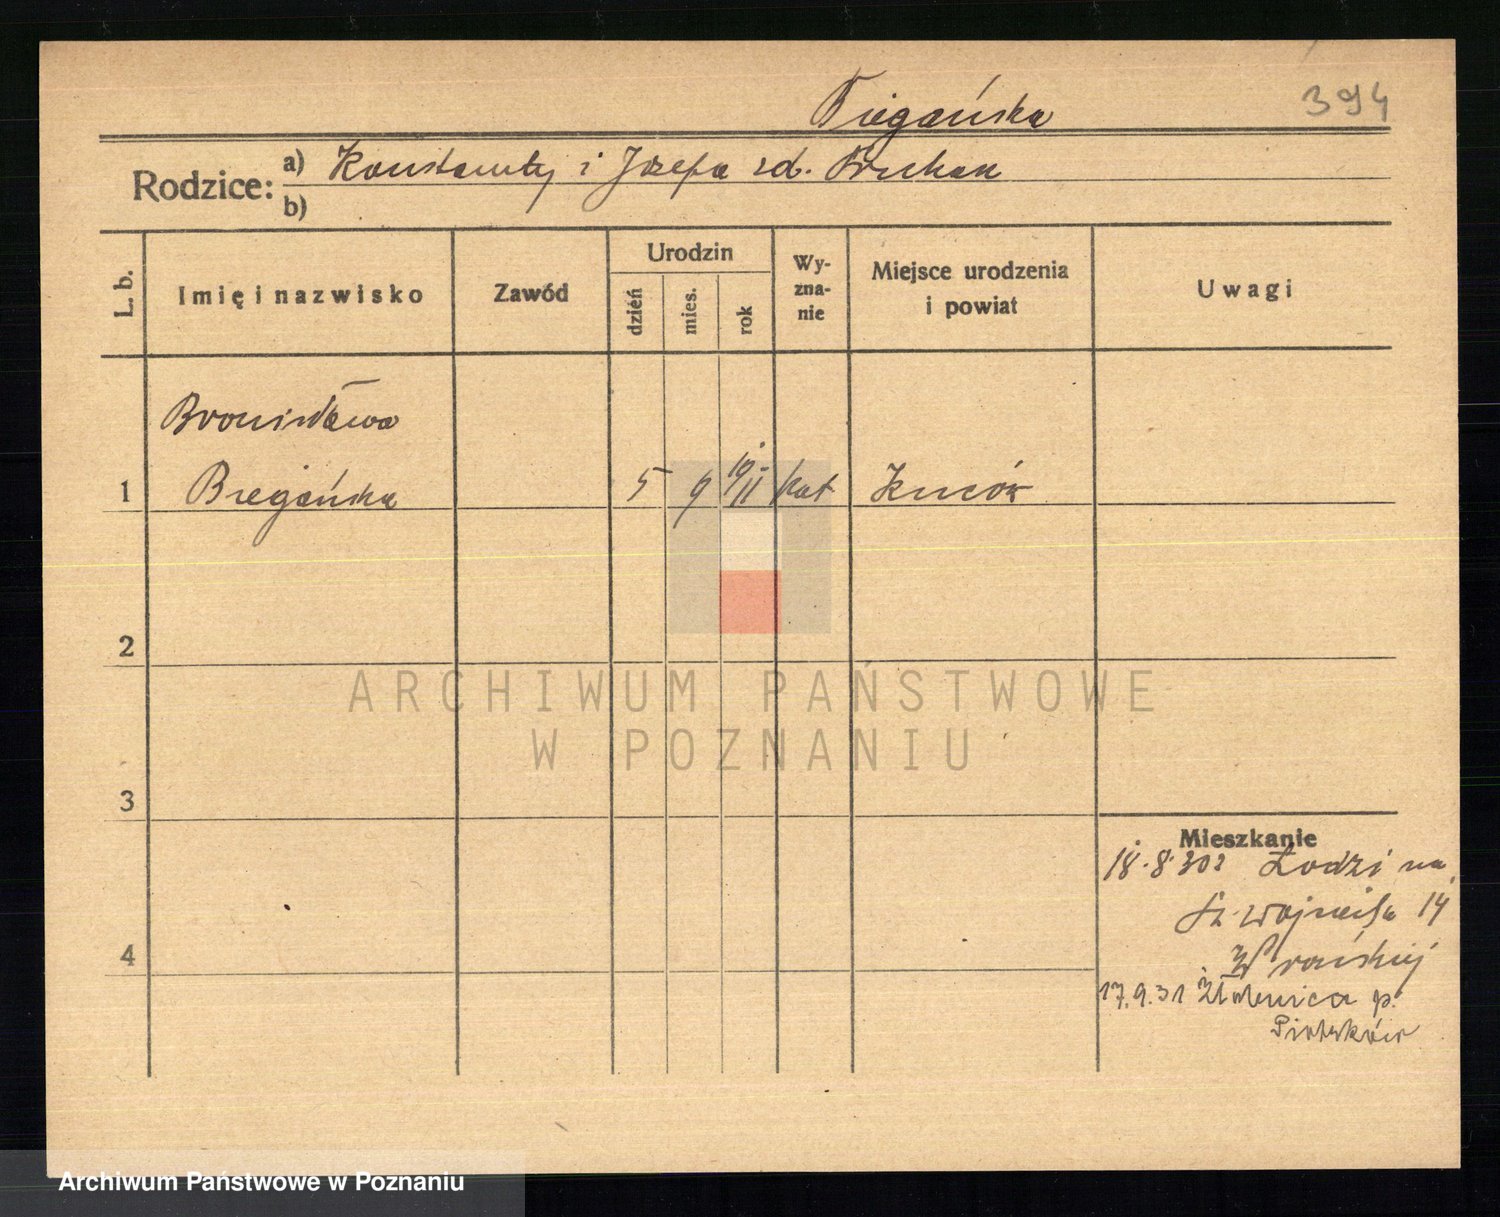 Biegańska 394
Rodzice: a) Konstanty i Józefa zd.
b)
L. b. Imię i nazwisko Zawód Urodzin Wy-zna-nie Miejsce urodzenia i powiat Uwagi
dzień mies. rok
Bronisława
1 Biegańska 5 9 1911 kat Kuców
2
ARCHIWUM PAŃSTWOWE
W POZNANIU
3
Mieszkanie
18.8.30 z Łodzi na
Św. Wojciecha 14
4
17.9.31 p.
Piotrków
Archiwum Państwowe w Poznaniu